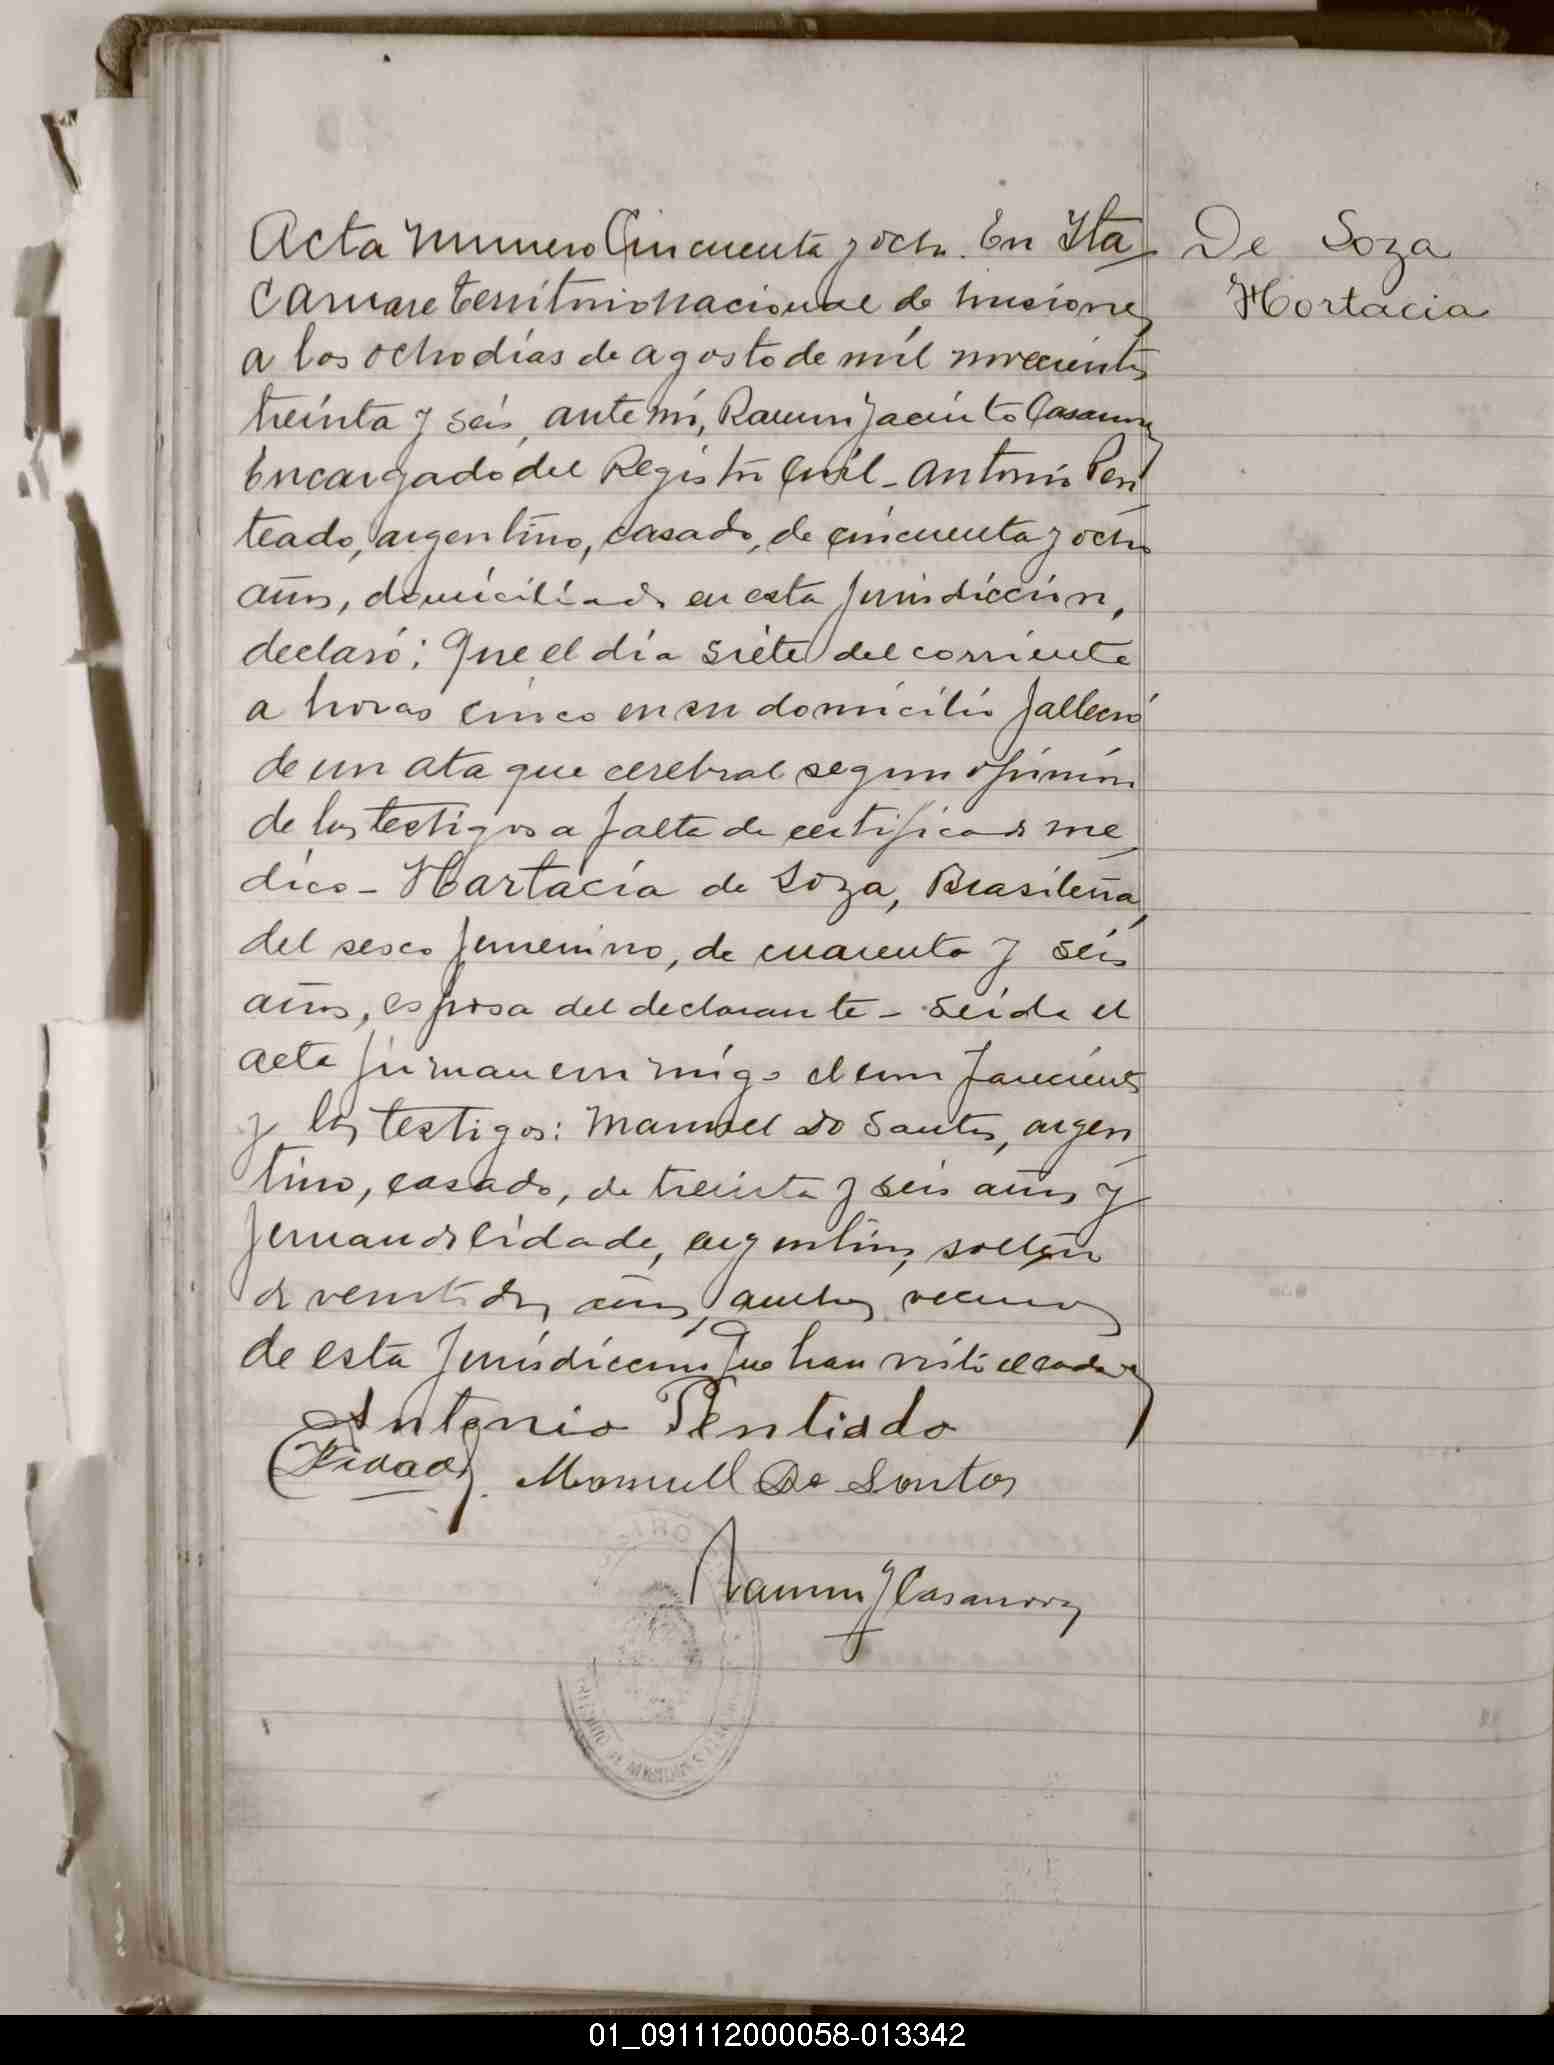 Acta Numero Cincuenta y ocho. En Ita
De Soza
Caruare territorio nacional de Misiones
Hortacia
a los ocho dias de agosto de mil novecientos
treinta y seis, ante mi, Ramon Jacinto Casanova
Encargado del Registro Civil - Antonio Pen
teado, argentino, casado, de cincuenta y ocho
años, domiciliado en esta jurisdiccion,
declaró: Que el día siete del corriente
a horas cinco en su domicilio falleció
de un ataque cerebral segun opinion
de los testigos a falta de certificado me
dico - Hartacia de Soza, Brasileña,
del sexo femenino, de cuarenta y seis
años, esposa del declarante - Leida el
acta firman conmigo el compareciente
y los testigos: Manuel do Santos, argen
tino, casado, de treinta y seis años y
argentino, soltero
de veintidos años, ambos vecinos
de esta jurisdiccion que han visto el cadaver
Antonio Pentiado
Manuell De Santos
Ramon J Casanova
01_091112000058-013342